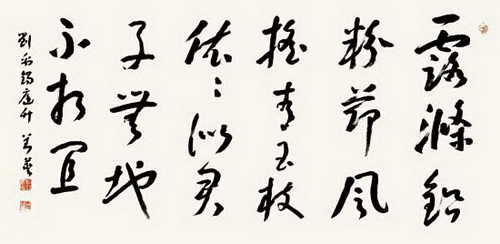 露滌鉛
粉節風
搖青玉枝
依〻似君
子無地
不相宜
劉禹錫庭竹